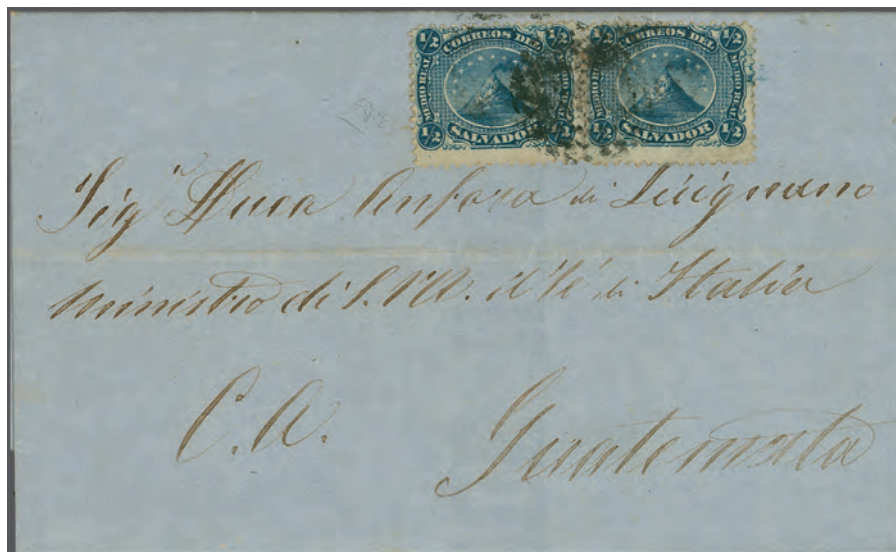 1/2 CORREOS DEL 1/2
MEDIO REAL
MEDIO REAL
1/2 SALVADOR 1/2
1/2 CORREOS DEL 1/2
MEDIO REAL
MEDIO REAL
1/2 SALVADOR 1/2
Sig.r Duca Anfora di Licignano
Ministro di S. M. il Ré di Italia
C. A. Guatemala